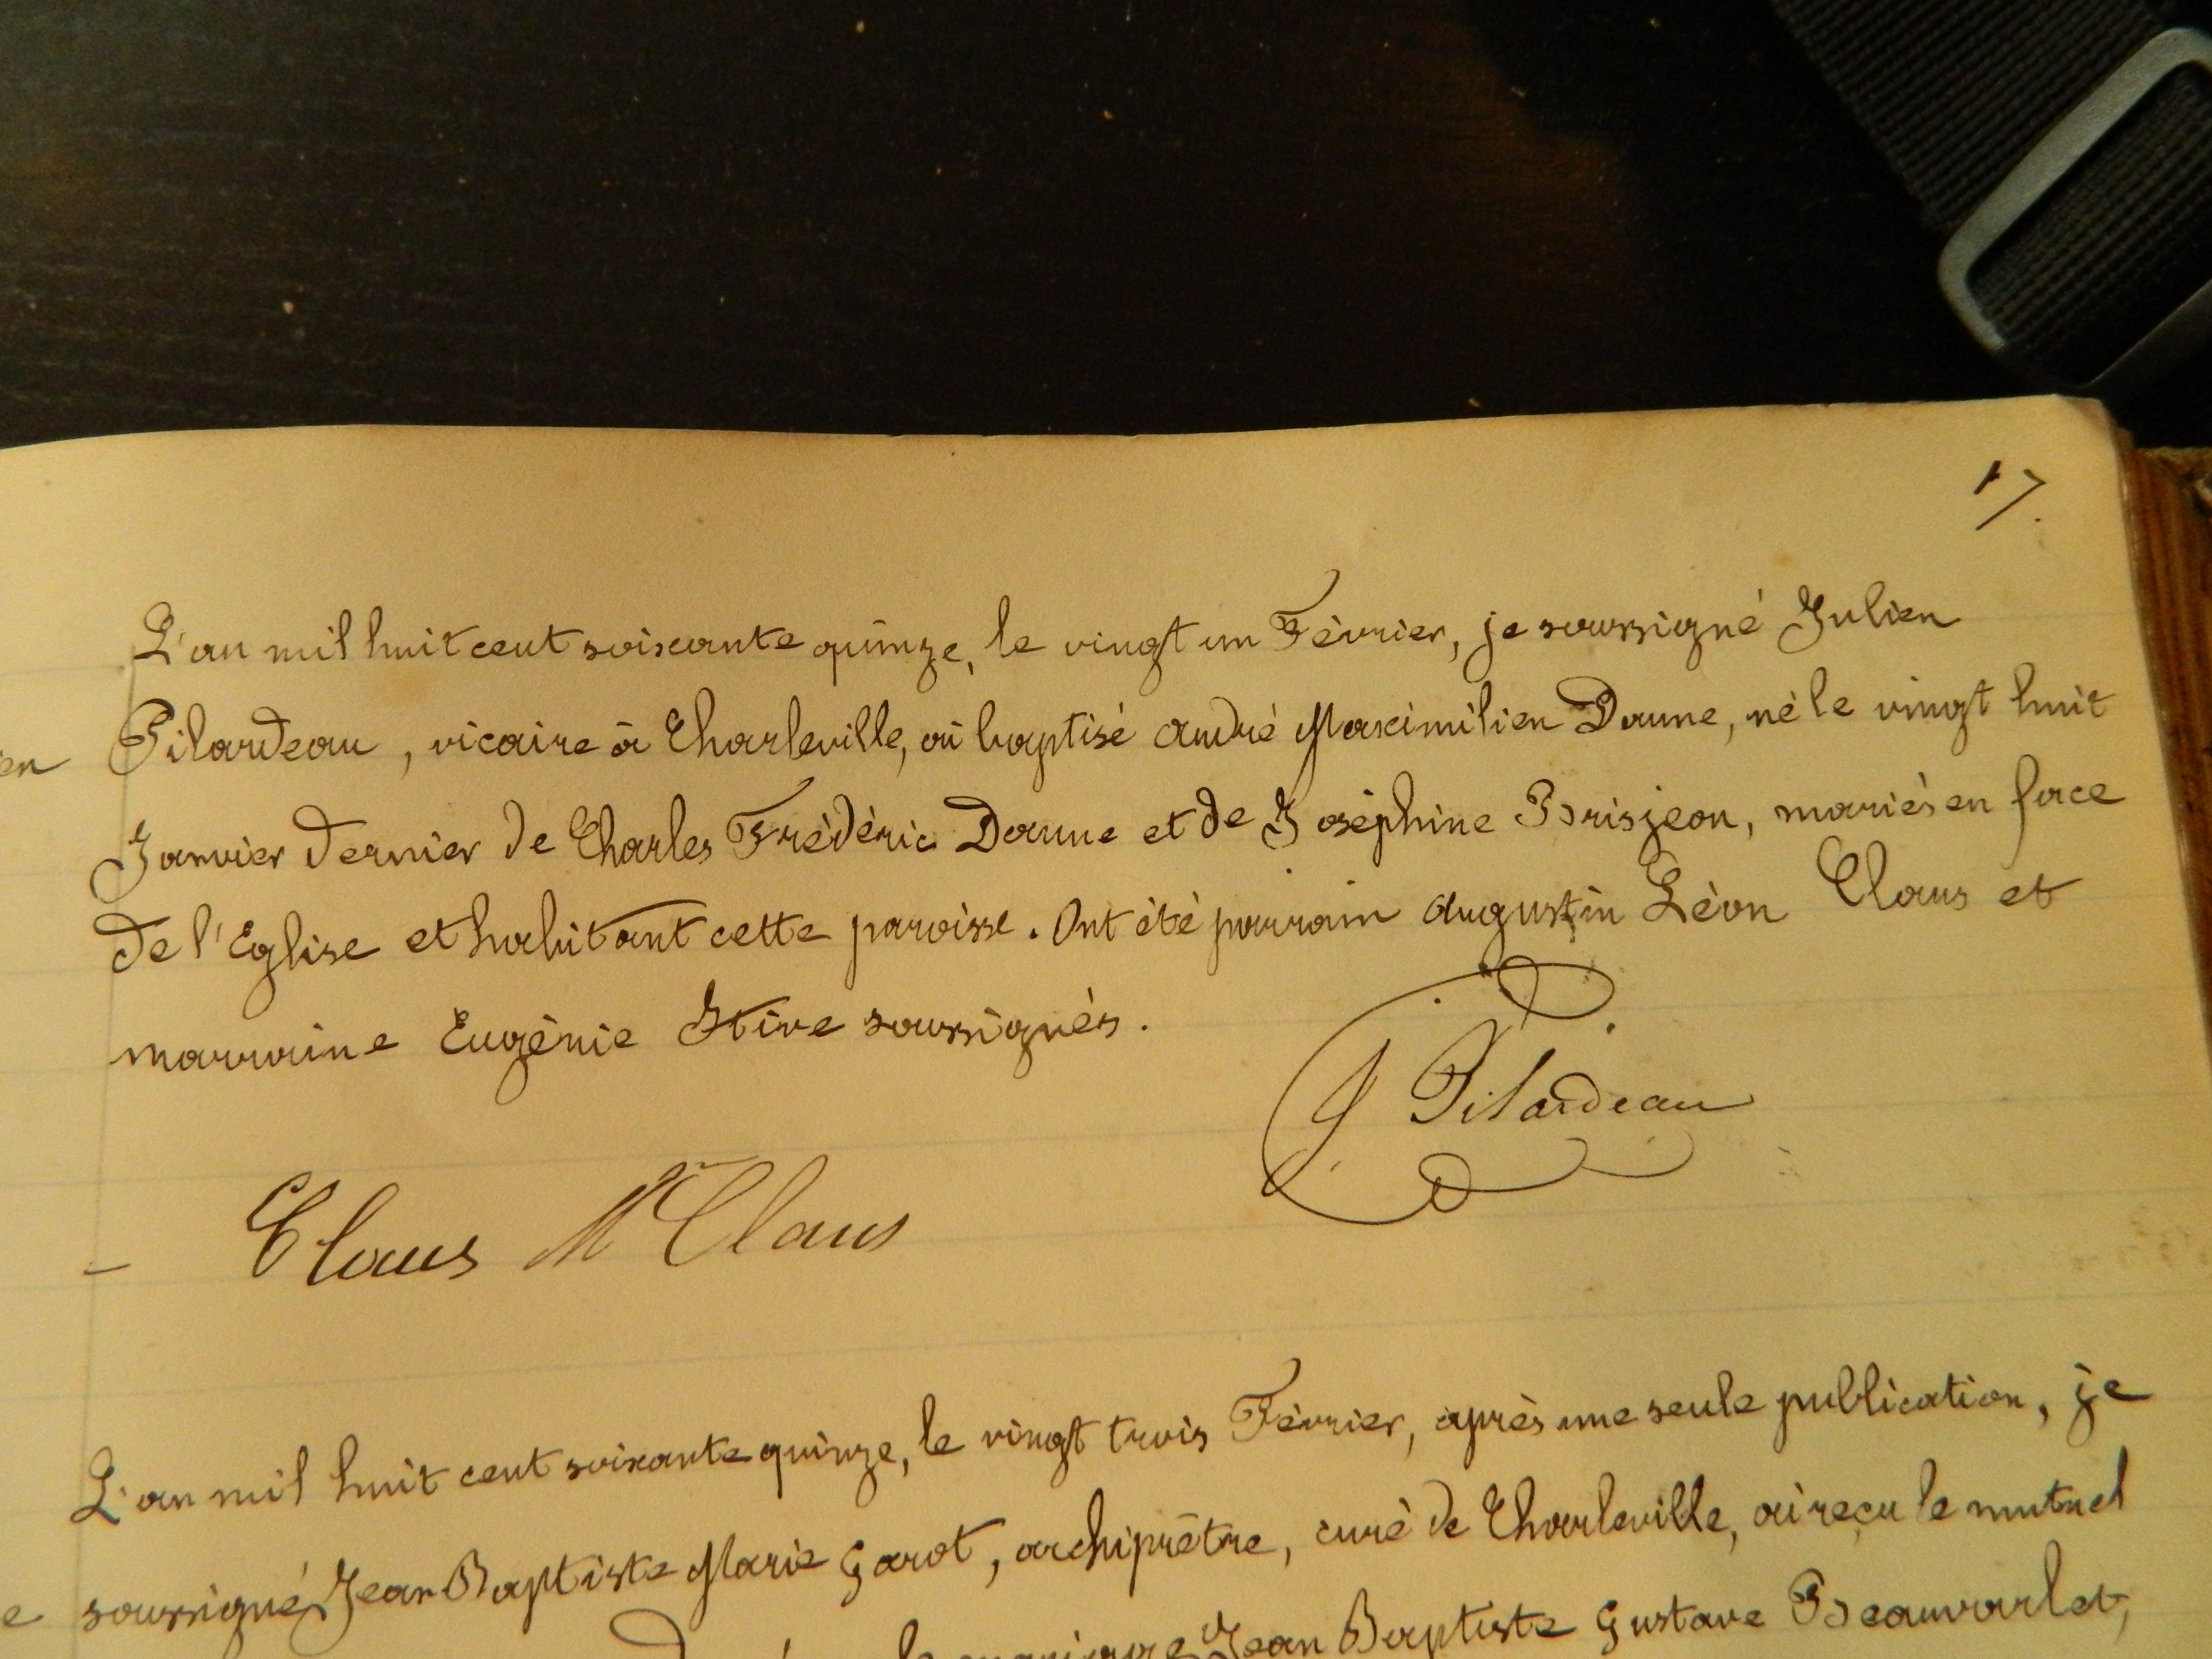 17.
L'an mil huit cent soixante quinze, le vingt un Février, je soussigné Julien
en Pilardeau, vicaire à Charleville, ai baptisé André Maximilien Daune, né le vingt huit
Janvier dernier de Charles Frédéric Daune et de Joséphine Brisjean, mariés en face
de l'Eglise et habitant cette paroisse. Ont été parrain Augustin Léon Claus et
marraine Eugénie soussignés.
J Pilardeau
Claus M Claus
L'an mil huit cent soixante quinze, le vingt trois Février, après une seule publication, je
e soussigné Jean Baptiste Marie Garot, archiprêtre, curé de Charleville, ai reçu le mutuel
Jean Baptiste Gustave Beauvarlet,